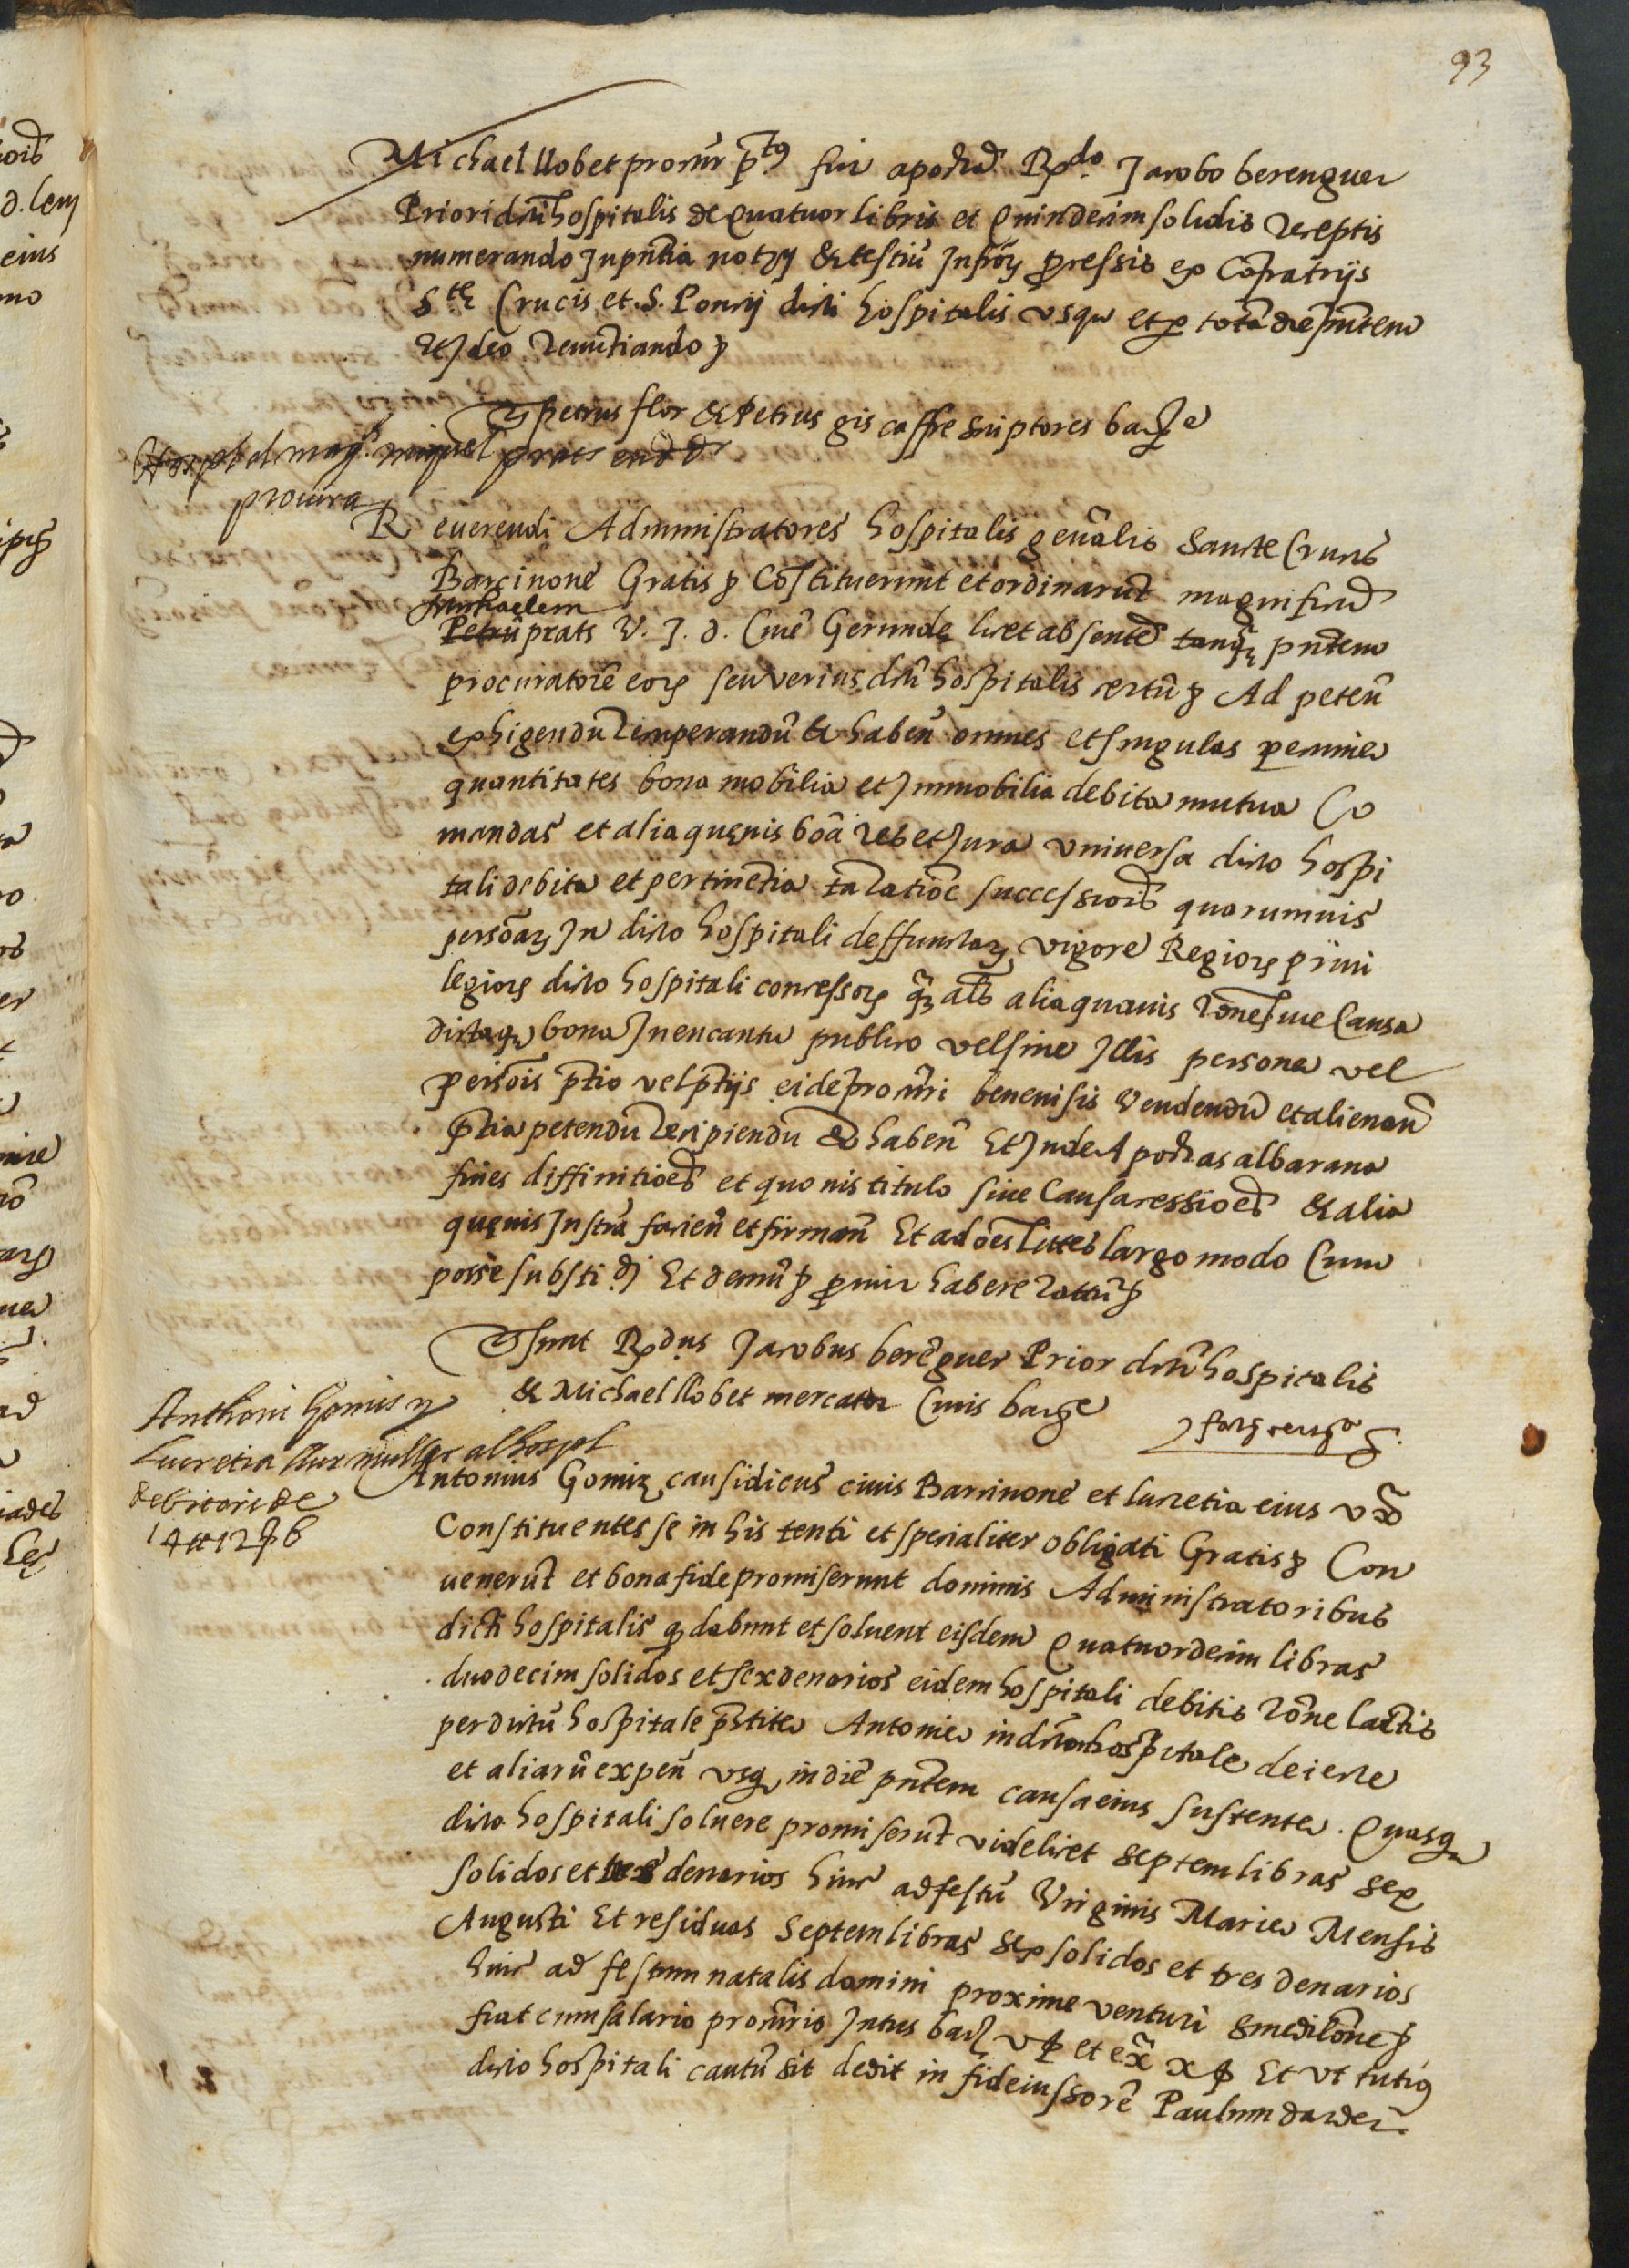 93
Michael llobet procūr p.tus fir apocha R.do Jacobo berenguer
Priori dicti hospitalis de Quatuor libris et Quindecim solidis receptis
numerando Jn pntia notry & testiū Jnfrōr processis ex Cōfratrijs
Ste Crucis et .S. Poncij dicti hospitalis vsqu et p totā diē pntem
Et Jdeo renūtiando &
Ts petrus flor & petrus gis caffre scriptores barne
Hospl al magch miquel prats en dd
procura
Reuerendi Administratores hospitalis gen̄alis Sancte Crucis
Barcinone Gratis & Cōstituerunt et ordinarūt magnificū
Michaelem
Petrū prats V. J. d. Ciuē Gerunde licet absentē tanqȝ pntem
procuratorē eorȝ seu verius dicti hospitalis certū & Ad petēn̄
exhigendū recuperandū & habēn̄ omnes et singulas pecunie
quantitates bona mobilia et Jmmobilia debita mutua Co
mandas et alia queuis bōa res et Jura vniuersa dicto hospi
tali debita et pertinētia tā ratiōe successiōis quarumuis
persōarȝ Jn dicto hospitali deffunctarȝ vigore Regiorȝ priui
legiorȝ dicto hospitali concessorȝ qȝ als alia quauis rōne siue Causa
dictaqȝ bona Jn encantu publico vel sine Jllis persone vel
persōis ptio vel ptijs eidē procūri beneuisis Vendendū et alienan̄
ptia petendū recipiendū & habēn̄ Et Jnde Apochas albarana
fines diffinitiōes et quouis titulo siue Causa cessiōes & alia
queuis Jnstrā facien̄ et firman̄ Et ad ōes littes largo modo Cum
posse substi di Et demū & pmir habere rattū &
Ts sunt R.dus Jacobus berēguer Prior dicti hospitalis
& Michael llobet mercator Ciuis barne
Anthoni Gomis y
Lucretia sur muller al hospl
debitoris de
14 tt 12 ß 6
Antonius Gomiz causidicus ciuis Barcinone et lucretia eius vxōr
Constituentes se in his tenti et specialiter obligati Gratis & Con
uenerūt et bona fide promiserunt dominis Administratoribus
dicti hospitalis q dabunt et soluent eisdem Quatuordecim libras
duodecim solidos et sex denarios eidem hospitali debitis rōne lactis
per dictū hospitale pstite Antonie in dictum hospitale deiecte
et aliarū expen̄ vsq in diē pntem causa eius sustente. Quasq
dicto hospitali soluere promiserūt videlicet septem libras sex
solidos et tres denarios hinc ad festū Virginis Marie Mensis
Augusti Et residuas septem libras sex solidos et tres denarios
hinc ad festum natalis domini proxime venturi sine dilōne &
fiat cum salario procūris Jntus barȝ v ß et ex̄ x ß Et vt tutiꝰ
dicto hospitali cautū sit dedit in fideiussorē Paulum darder